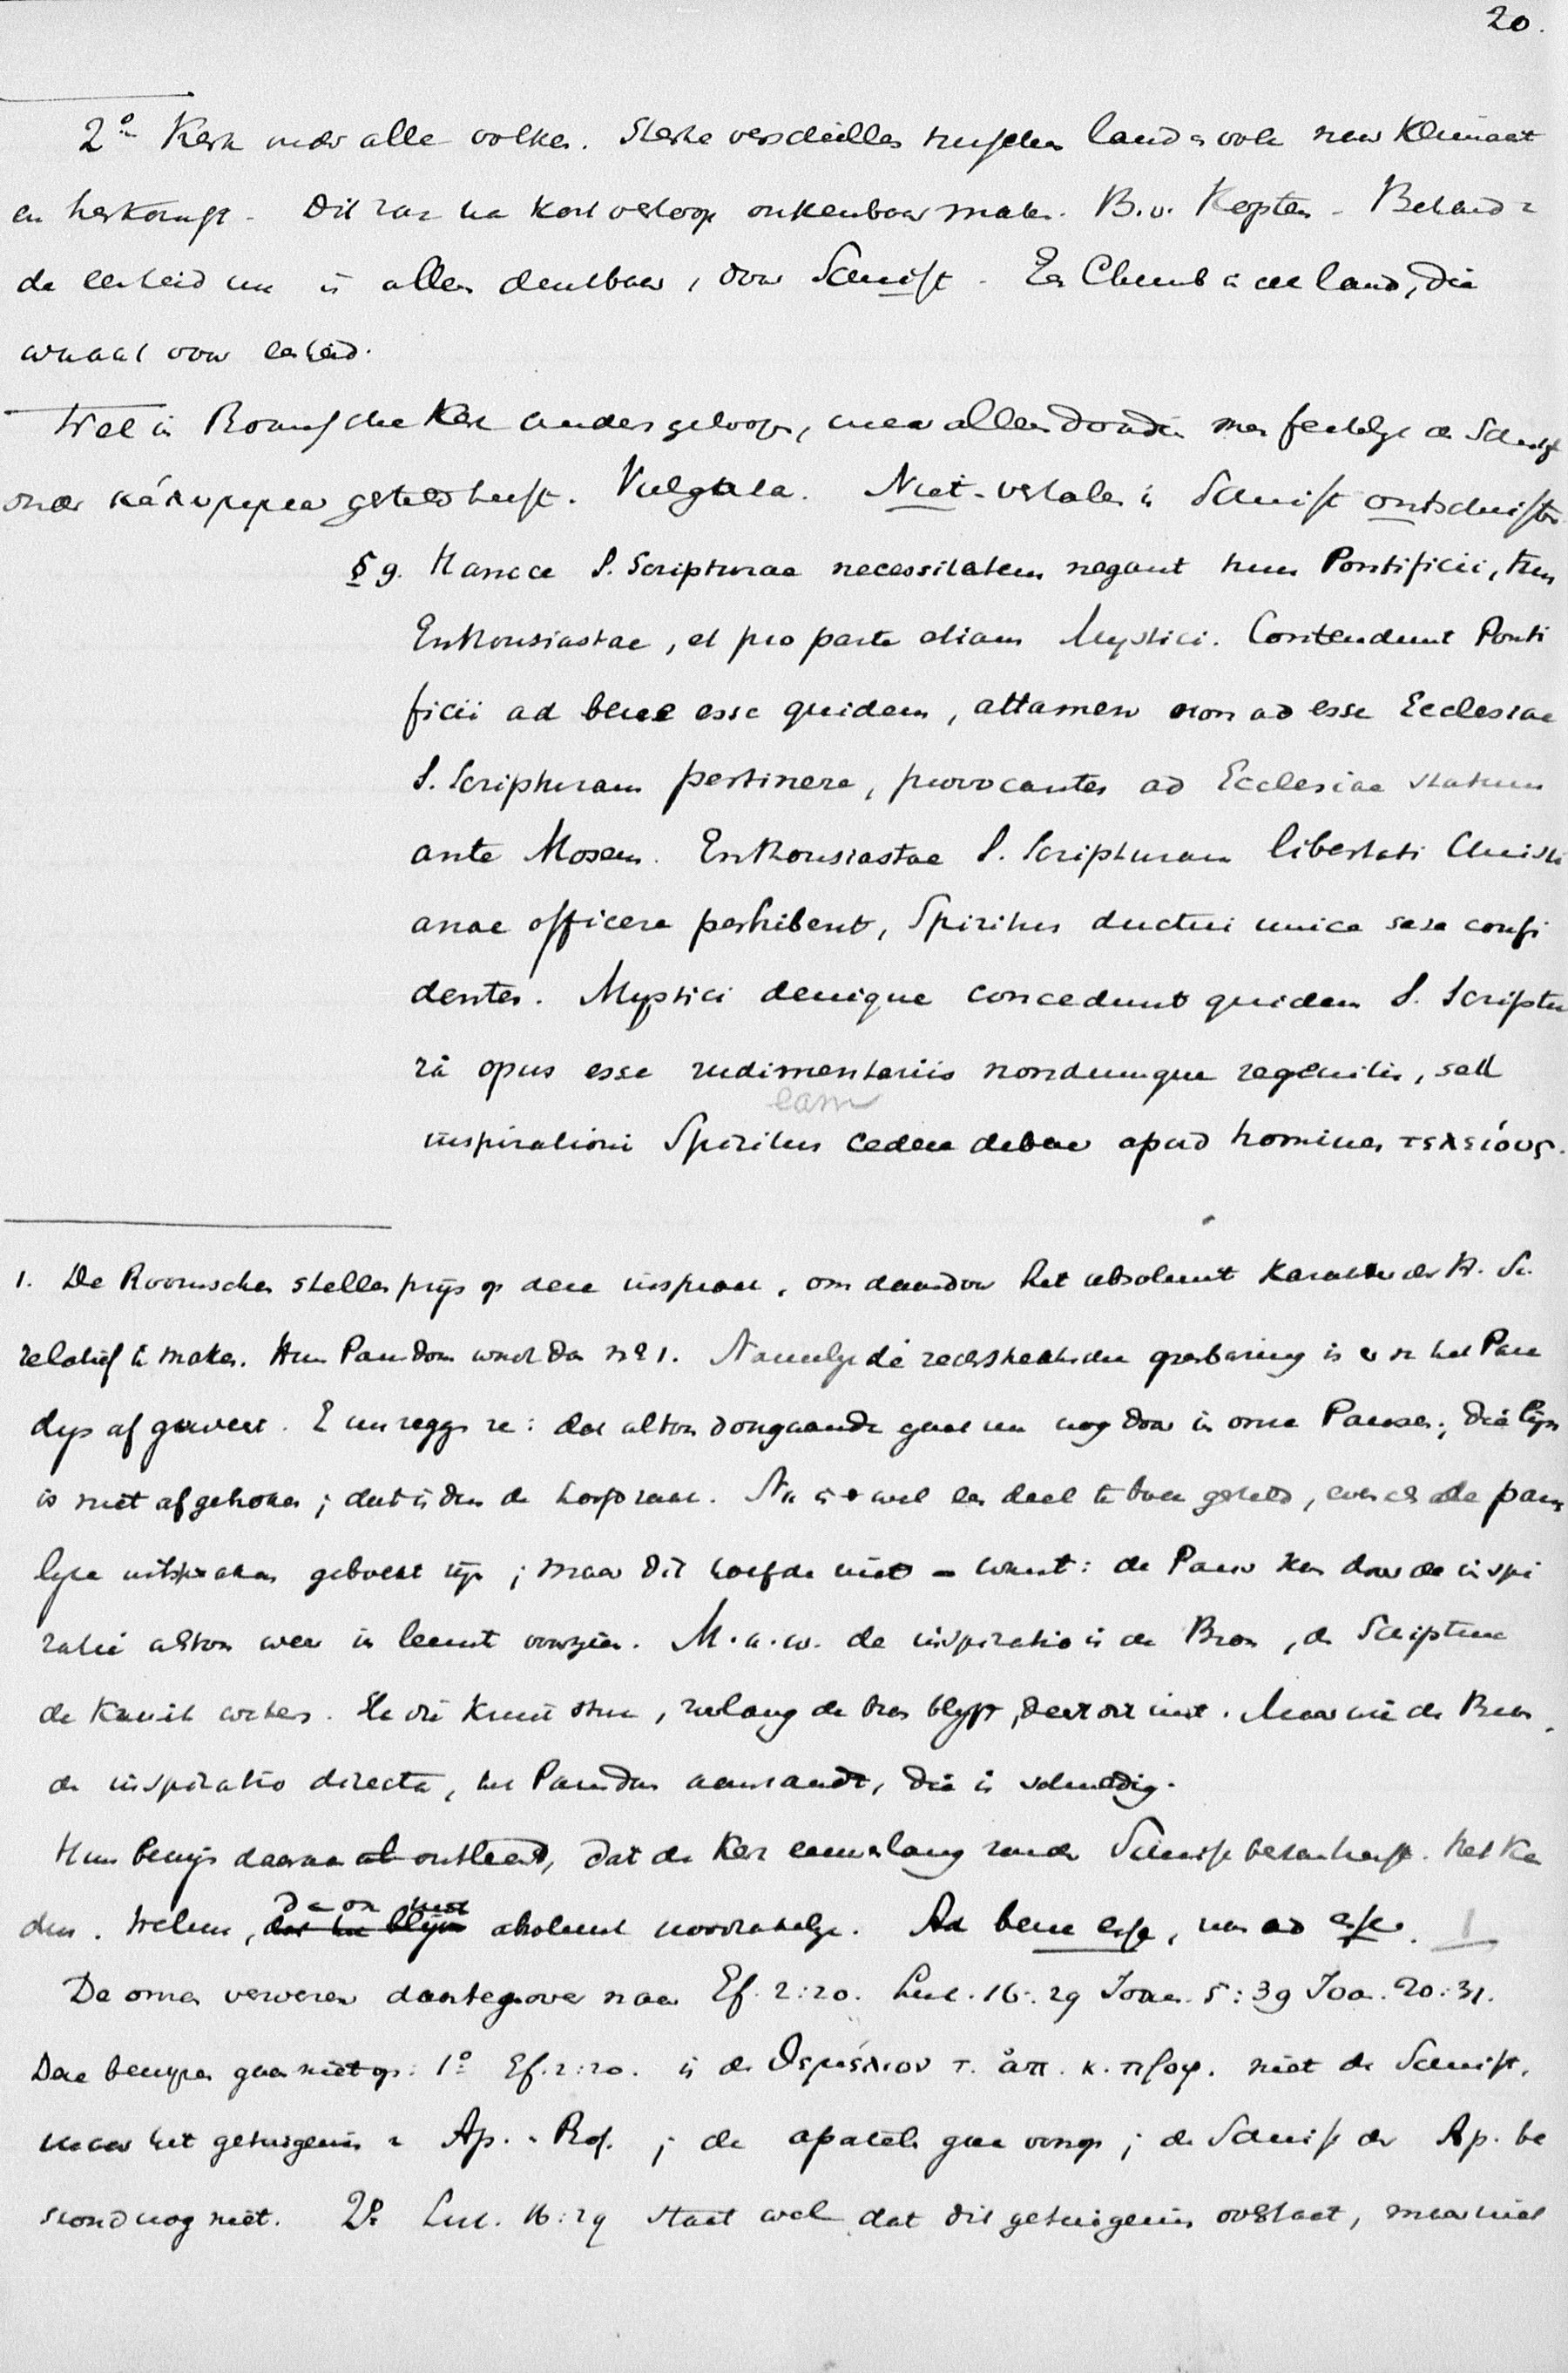 20.
2º Kerk onder alle volken. Sterke verschillen tusschen land en volk naar Klimaat
en herkomst. Dit zou na kort verloop onkenbaar maken. B.v. Kopten. Behoud v
de eenheid nu is alleen denkbaar, door Schrift. Een Club in een land, die
waakt voor eenheid.
Wel in Roomsche Kerk anders geloopen, maar alleen doordien men feitelijk de Schrift
onder κάλυμμα gesteld heeft. Vulgata. Niet-vertalen is Schrift ontschriften
§ 9. Hancce S. Scripturae necessitatem negant tum Pontificii, tum
Enthousiastae, et pro parte etiam Mystici. Contendunt Ponti
ficii ad bene esse quidem, attamen non ad esse Ecclesiae
S. Scripturam pertinere, provocantes ad Ecclesiae statum
ante Mosem. Enthousiastae S. Scripturam libertati Christi
anae officere perhibent, Spiritus ductui unice sese confi
dentes. Mystici denique concedunt quidem S. Scriptu
râ opus esse rudimentariis nondumque regenitis, sed
eam
inspirationi Spiritus cedere debere apud homines τελείους.
1. De Roomschen stellen prijs op deze inspraak, om daardoor het absoluut karakter der H. S.
relatief te maken. Hun Pausdom wordt dan nº 1. Namelijk de rechtstreeksche openbaring is er van het Para
dijs af geweest. En nu zeggen ze: dat altoos doorgaande gaat nu nog door in onze Pausen; die lijn
is niet afgebroken; dat is dus de hoofdzaak. Nu is wel een deel te boek gesteld, evenals alle paus
lijke uitspraken geboekt zijn; maar dit hoefde niet – want: de Paus kan door de inspi
ratie altoos weer in leemte voorzien. M.a.w. de inspiratio is de Bron, de Scriptura
de kruik waters. Is die kruik stuk, zoolang de bron blijft, deert dit niet. Maar wie de Bron,
de inspiratio directa, het Pausdom aanrandt, die is schuldig.
Hun bewijs daaraan ontleend, dat de Kerk eeuwenlang zonder Schrift bestaan heeft. Het kan
dus. Welnu, dan ook niet absoluut noodzakelijk. Ad bene esse, non ad esse.
De onzen verweren daartegenover naar Ef. 2:20. Luc. 16:29 Joan. 5:39 Joa. 20:31.
Deze bewijzen gaan niet op: 1º Ef. 2:20. is de θεμέλιον τ. ἀπ. κ. προφ. niet de Schrift,
maar het getuigenis v Ap. en Prof.; de apostelen gaan voorop; de Schrift der Ap. be
stond nog niet. 2º Luc. 16:29 staat wel dat dit getuigenis volstaat, maar niet